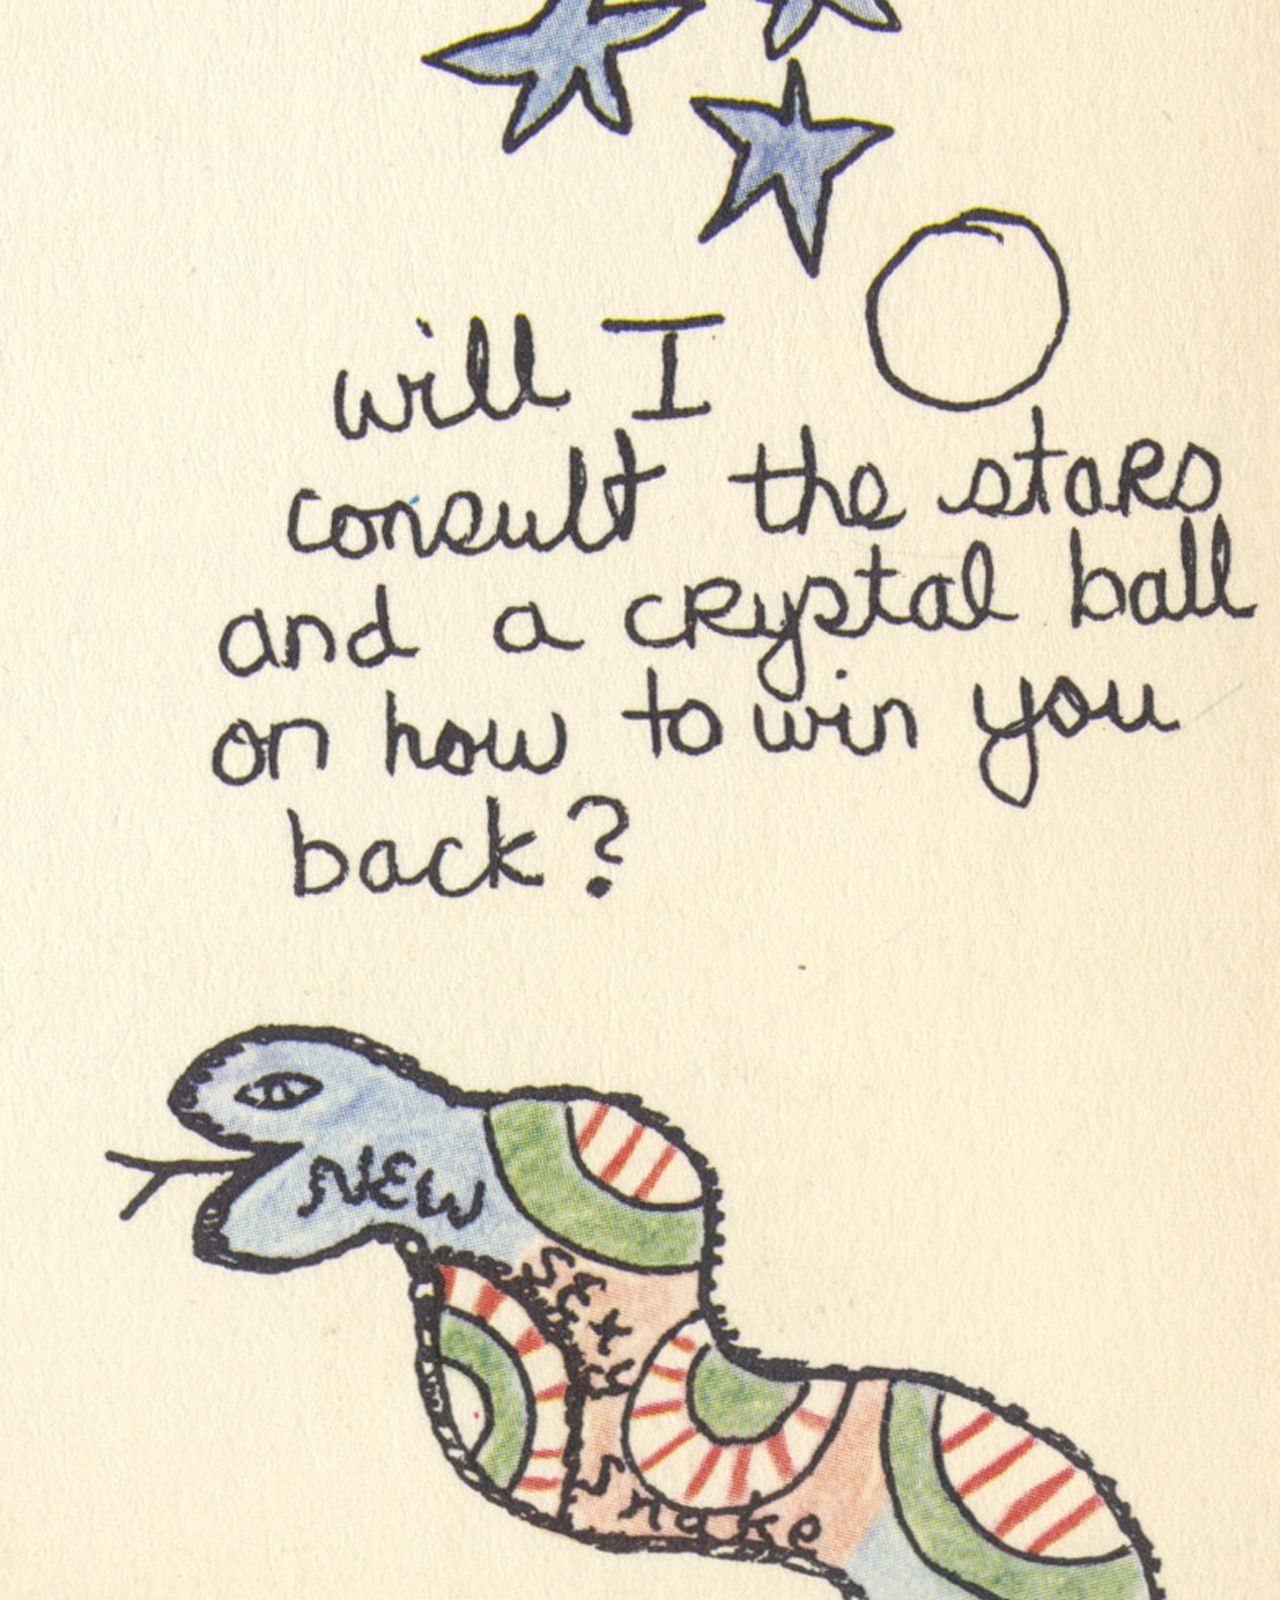 will I
consult the stars
and a crystal ball
on how to win you
back?
NEW
SExy
Snake